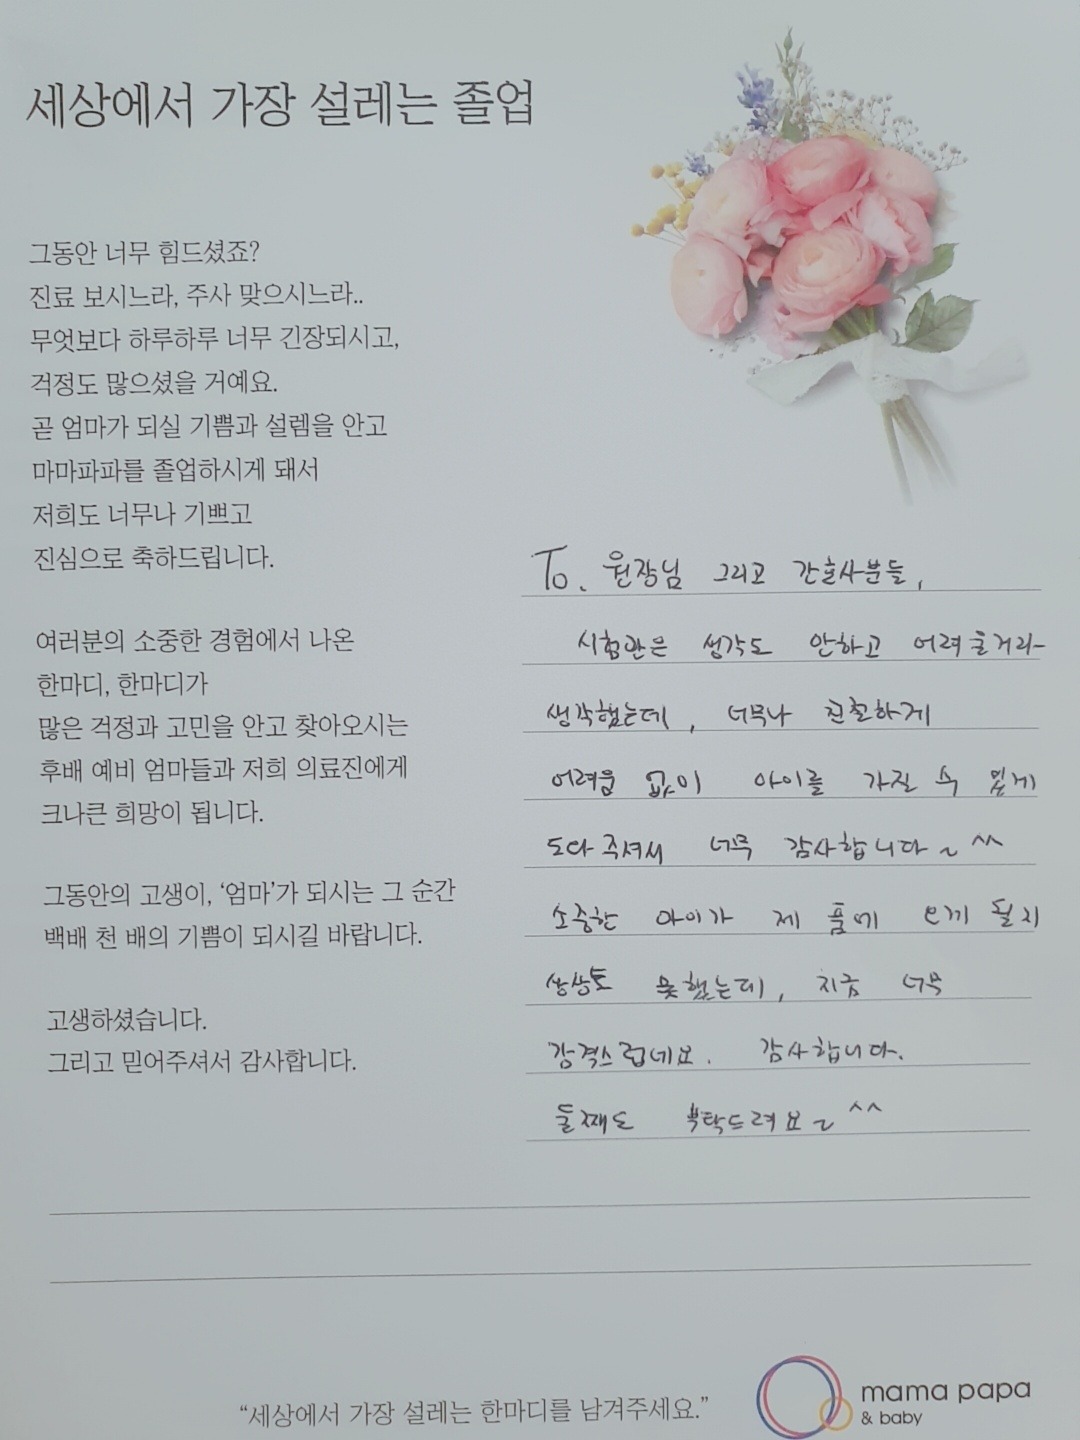 세상에서 가장 설레는 졸업
그동안 너무 힘드셨죠?
진료 보시느라, 주사 맞으시느라..
무엇보다 하루하루 너무 긴장되시고,
걱정도 많으셨을 거예요.
곧 엄마가 되실 기쁨과 설렘을 안고
마마파파를 졸업하시게 돼서
저희도 너무나 기쁘고
진심으로 축하드립니다.
여러분의 소중한 경험에서 나온
한마디, 한마디가
많은 걱정과 고민을 안고 찾아오시는
후배 예비 엄마들과 저희 의료진에게
크나큰 희망이 됩니다.
그동안의 고생이, ‘엄마’가 되시는 그 순간
백배 천 배의 기쁨이 되시길 바랍니다.
고생하셨습니다.
그리고 믿어주셔서 감사합니다.
To. 원장님 그리고 간호사분들,
시험관은 생각도 안하고 어려울거라
생각했는데, 너무나 친절하게
어려움 없이 아이를 가질 수 있게
도와주셔서 너무 감사합니다~ ^^
소중한 아이가 제 품에 오게 될지
상상도 못했는데, 지금 너무
감격스럽네요. 감사합니다.
둘째도 부탁드려요~ ^^
“세상에서 가장 설레는 한마디를 남겨주세요.”
mama papa
& baby